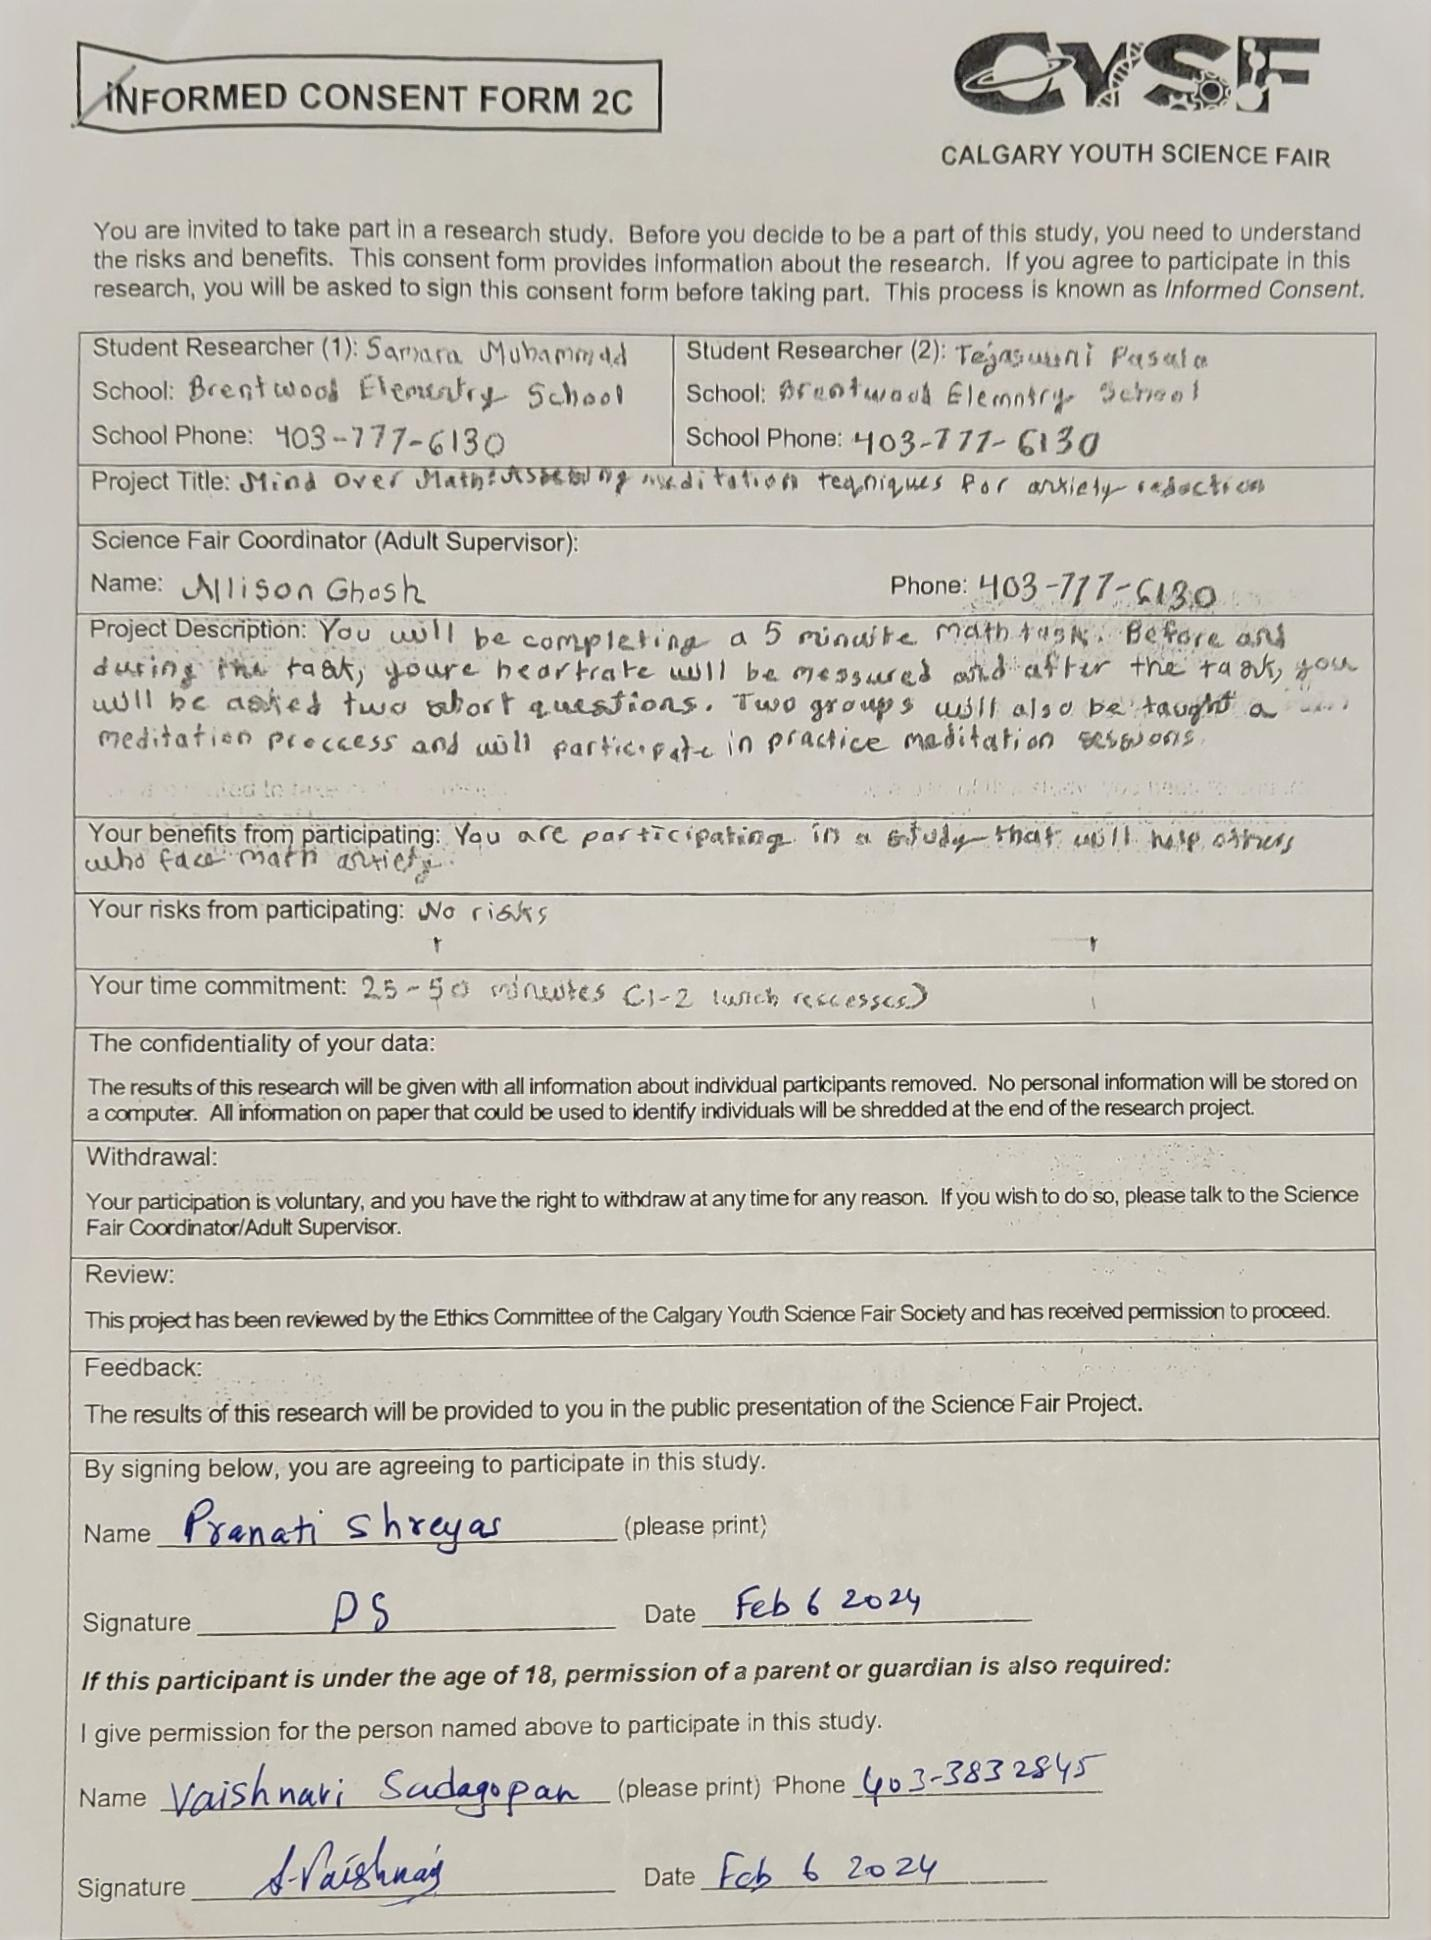 INFORMED CONSENT FORM 2C
CYSF
CALGARY YOUTH SCIENCE FAIR
You are invited to take part in a research study. Before you decide to be a part of this study, you need to understand
the risks and benefits. This consent form provides information about the research. If you agree to participate in this
research, you will be asked to sign this consent form before taking part. This process is known as Informed Consent.
Student Researcher (1): Samara Muhammad
School: Brentwood Elementry School
School Phone: 403-777-6130
Student Researcher (2): Tejaswini Pasala
School: Brentwood Elemntry School
School Phone: 403-777-6130
Project Title: Mind Over Math: Assessing meditation teqniques for anxiety reduction
Science Fair Coordinator (Adult Supervisor):
Name: Allison Ghosh Phone: 403-777-6130
Project Description: You will be completing a 5 minuite math task. Before and
during the task, youre heartrate will be messured and after the task, you
will be asked two short questions. Two groups will also be taught a
meditation proccess and will participate in practice meditation sessions.
Your benefits from participating: You are participating in a study that will help others
who face math anxiety.
Your risks from participating: No risks
Your time commitment: 25-50 minutes (1-2 lunch reccesses)
The confidentiality of your data:
The results of this research will be given with all information about individual participants removed. No personal information will be stored on
a computer. All information on paper that could be used to identify individuals will be shredded at the end of the research project.
Withdrawal:
Your participation is voluntary, and you have the right to withdraw at any time for any reason. If you wish to do so, please talk to the Science
Fair Coordinator/Adult Supervisor.
Review:
This project has been reviewed by the Ethics Committee of the Calgary Youth Science Fair Society and has received permission to proceed.
Feedback:
The results of this research will be provided to you in the public presentation of the Science Fair Project.
By signing below, you are agreeing to participate in this study.
Name Pranati Shreyas (please print)
Signature PS Date Feb 6 2024
If this participant is under the age of 18, permission of a parent or guardian is also required:
I give permission for the person named above to participate in this study.
Name Vaishnavi Sadagopan (please print) Phone 403-3832845
Signature S.Vaishnavi Date Feb 6 2024